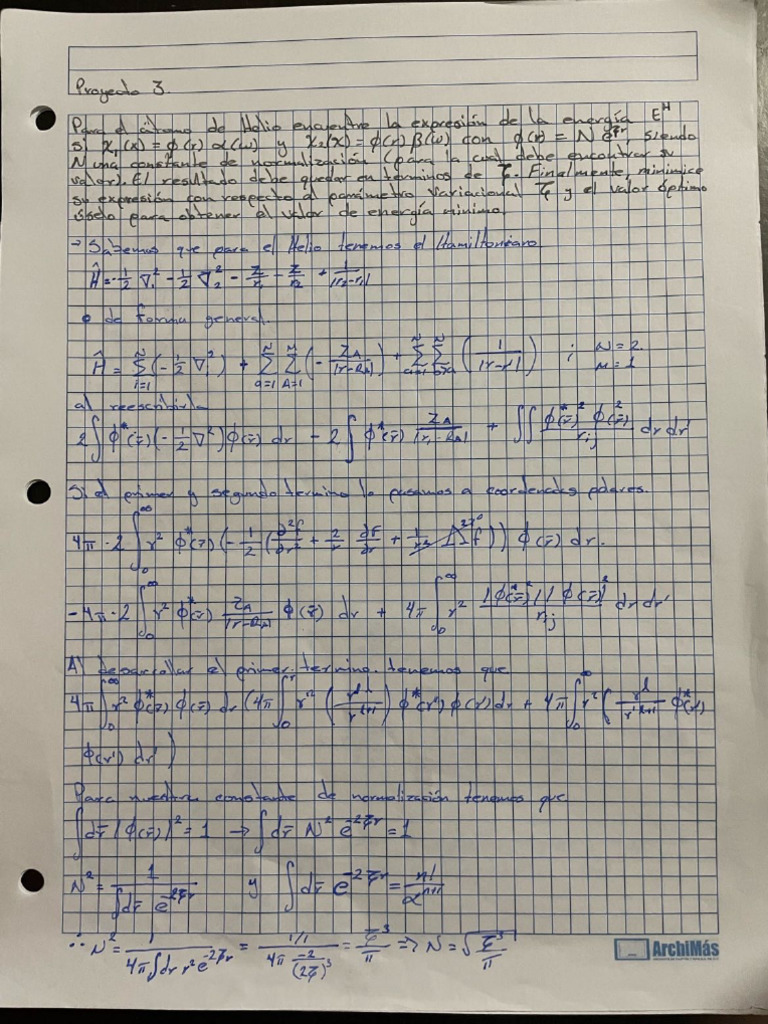 Proyecto 3.
Para el átomo de Helio encuentre la expresión de la energía E^H
si χ₁(x) = φ(r) α(ω) y χ₂(x) = φ(r) β(ω) con φ(r) = N e^{-ζr} siendo
N una constante de normalización (para la cual debe encontrar su
valor). El resultado debe quedar en términos de ζ. Finalmente, minimice
su expresión con respecto al parámetro variacional ζ y el valor óptimo
úselo para obtener el valor de energía mínimo.
→ Sabemos que para el Helio tenemos el Hamiltoniano
Ĥ = -1/2 ∇₁² - 1/2 ∇₂² - Z/r₁ - Z/r₂ + 1/|r₂-r₁|
o de forma general.
Ĥ = Σ_{i=1}^{N} (-1/2 ∇ᵢ²) + Σ_{a=1}^{N} Σ_{A=1}^{M} (- Z_A/|r-R_A|) + Σ_{a=1}^{N} Σ_{b>a}^{N} (1/|r-r'|) ; N=2 M=1
al reescribirla
2∫ φ*(r̄)(-1/2 ∇²)φ(r̄) dr - 2∫ φ*(r̄) Z_A/|r₁-R_A| + ∫∫ φ*(r̄)² φ(r̄)²/r_ij dr dr'
Si el primer y segundo termino lo pasamos a coordenadas polares.
4π · 2 ∫₀^∞ r² φ*(r̄) (-1/2 (∂²f/∂r² + 2/r ∂f/∂r + 1/r² Λ²f)) φ(r̄) dr.
-4π · 2 ∫₀^∞ r² φ*(r̄) Z_A/|r-R_A| φ(r̄) dr + 4π ∫₀^∞ r² |φ*(r̄)|² |φ(r̄)|²/r_ij dr dr'
Al desarrollar el primer termino tenemos que
4π ∫₀^∞ r² φ*(r̄) φ(r̄) dr (4π ∫₀^r r'² (r'^l/r^{l+1}) φ*(r') φ(r') dr + 4π ∫₀^∞ r² (r^l/r'^{l+1} φ*(r')
φ(r') dr')
Para nuestra constante de normalización tenemos que
∫dr̄ |φ(r̄)|² = 1 → ∫dr̄ N² e^{-2ζr} = 1
N² = 1/∫dr̄ e^{-2ζr} y ∫dr̄ e^{-2ζr} = n!/α^{n+1}
∴ N² = 1/4π∫dr r² e^{-2ζr} = 1/4π 2/(2ζ)³ = ζ³/π ⇒ N = √(ζ³/π)
ArchiMás